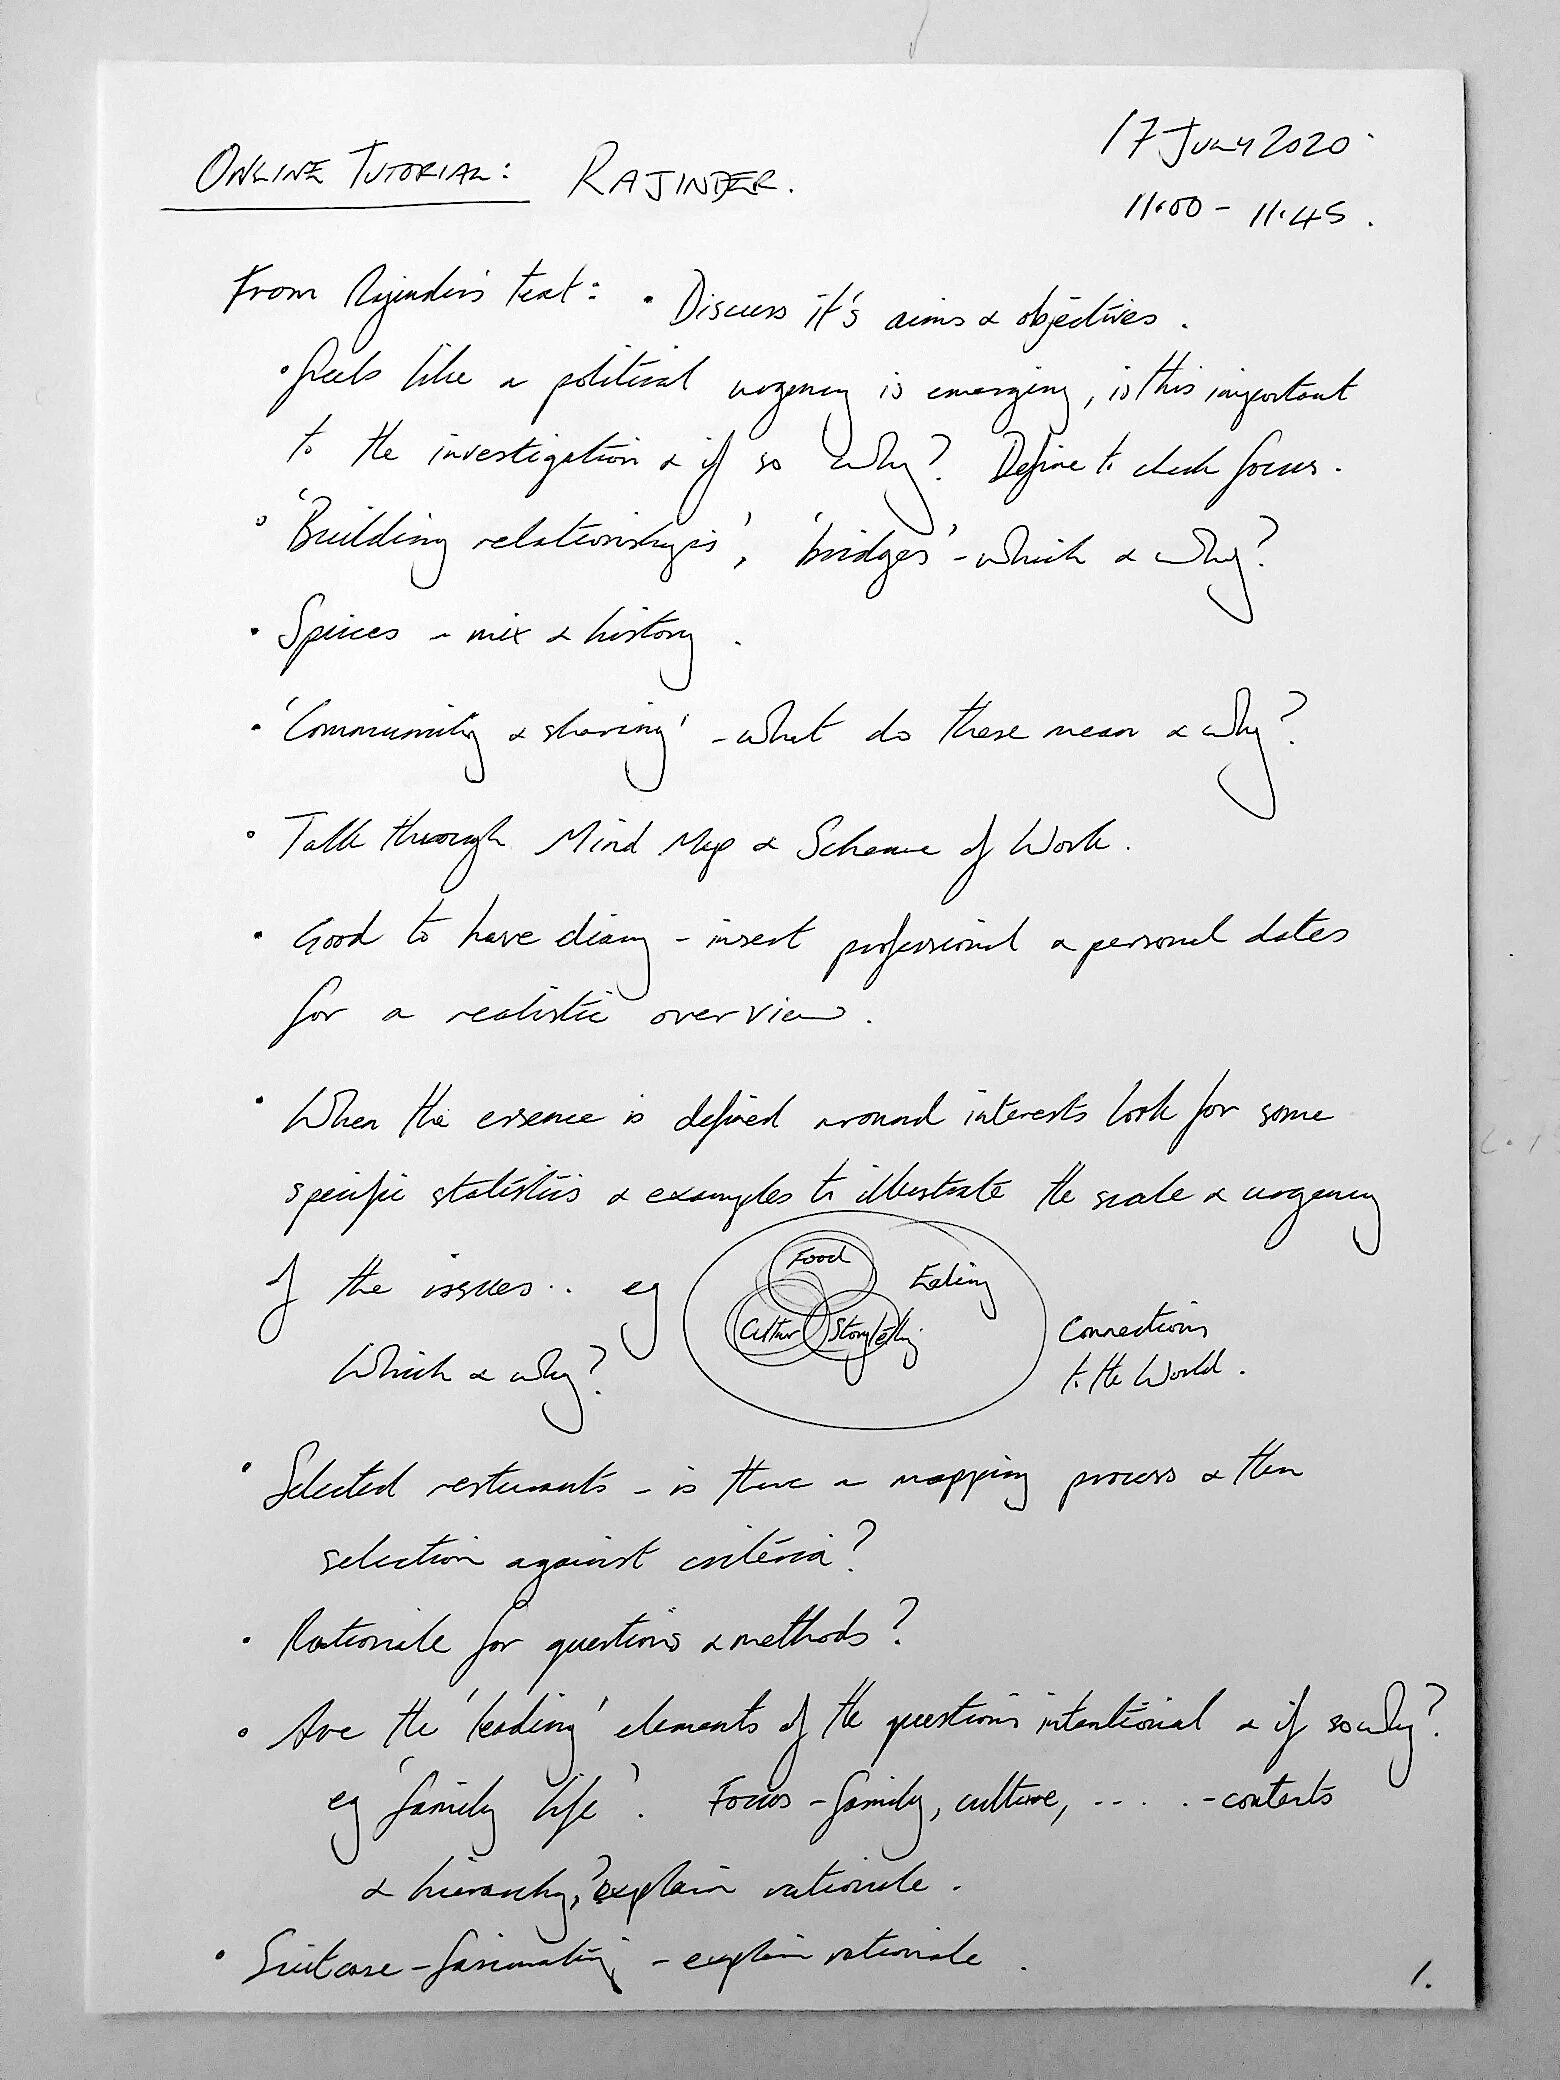 17 July 2020
ONLINE TUTORIAL: RAJINDER.
11.00 - 11.45.
From Rajinder's text: • Discuss it's aims & objectives.
• feels like a political urgency is emerging, is this important
to the investigation & if so why? Define to check focus.
• 'Building relationships', 'bridges' - which & why?
• Spices - mix & history.
• 'Community & sharing' - what do these mean & why?
• Talk through Mind Map & Scheme of Work.
• Good to have diary - insert professional & personal dates
for a realistic overview.
• When the essence is defined around interests look for some
specific statistics & examples to illustrate the scale & urgency
of the issues.. eg
Food
Eating
Culture
Storytelling
Connections
to the World.
Which & why?
• Selected restaurants - is there a mapping process & then
selection against criteria?
• Rationale for questions & methods?
• Are the 'leading' elements of the questions intentional & if so why?
eg 'family life'. Focus - family, culture, -- . . - contexts
& hierarchy,? explain rationale.
• Suitcase - fascinating - explain rationale.
1.